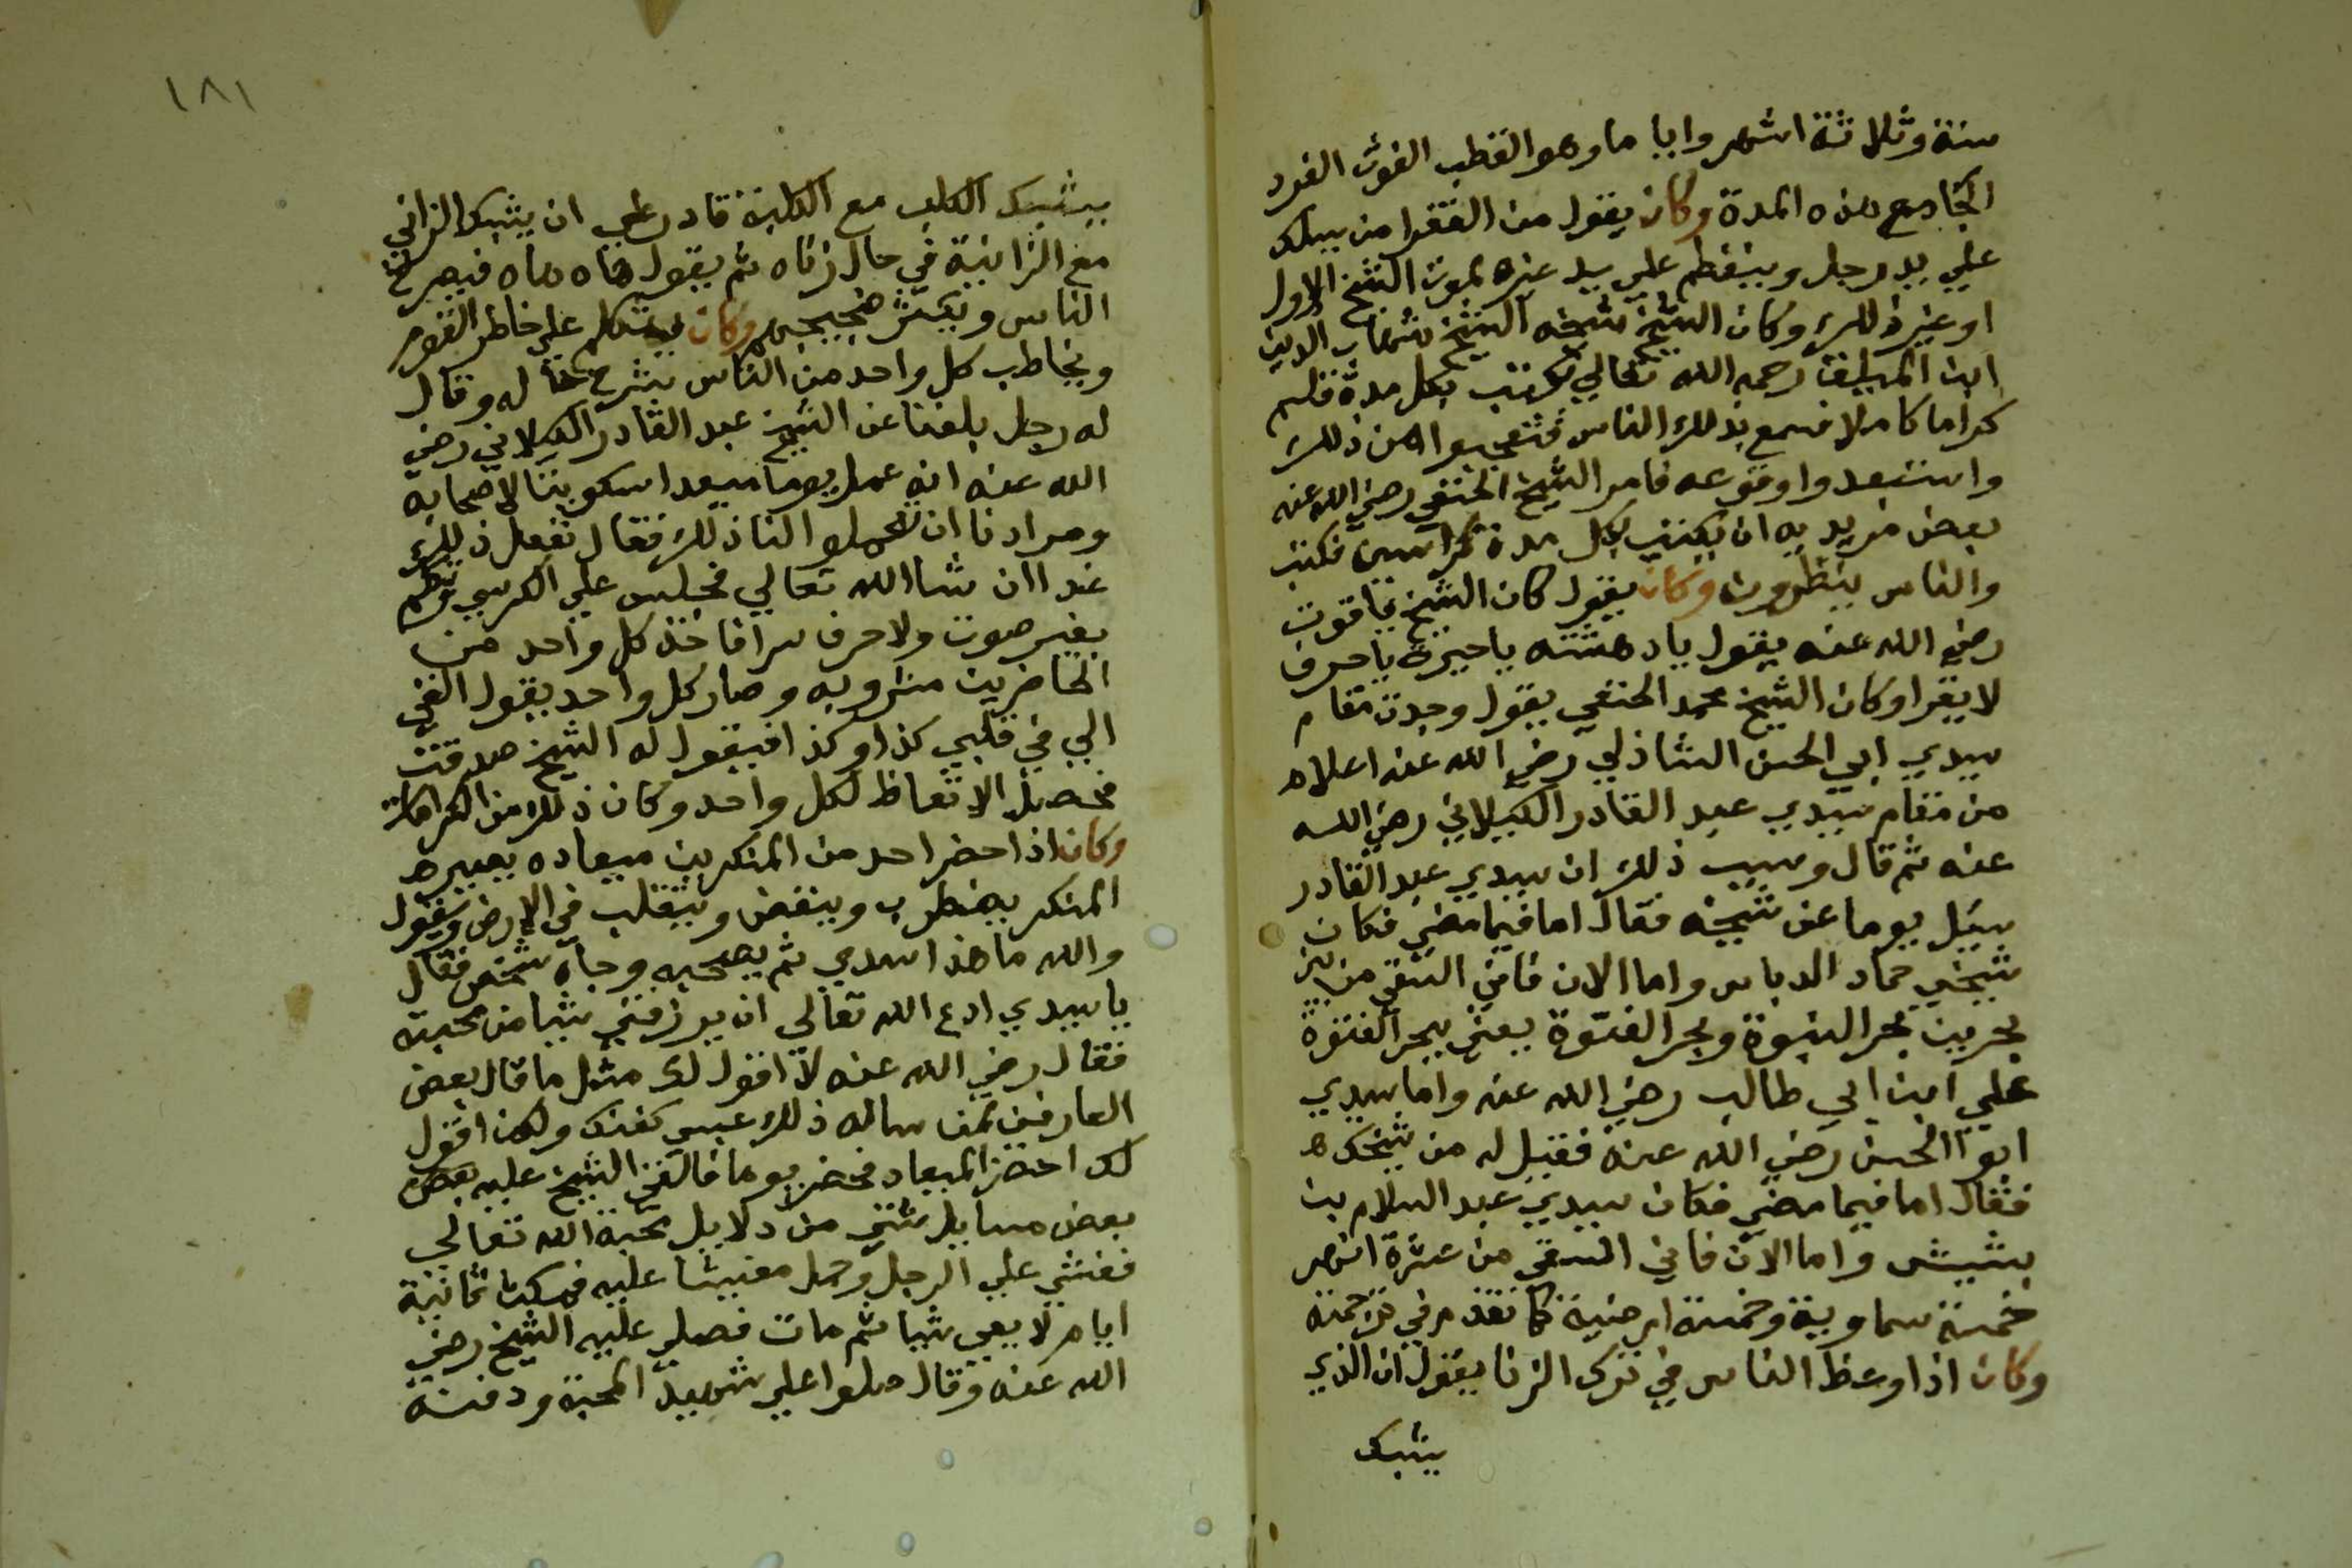 سنة وثلاثة اشهر واياما وهو القطب الغوث الفرد
الجامع هذه المدة وكان يقول من الفقرا من يسلك
علي يد رجل وينفطم علي يد غيره لموت الشيخ الاول
او غير ذلك وكان الشيخ شيخه الشيخ شهاب الدين
ابن الميلق رحمه الله تعالي يكتب بكل مدة قلم
كراسا كاملا فسمع بذلك الناس فتعجبوا من ذلك
واستبعدوا وقوعه فامر الشيخ الحنفي رضي الله عنه
بعض مريديه ان يكتب بكل مدة كراسين فكتب
والناس ينظرون وكان يقول كان الشيخ ياقوت
رضي الله عنه يقول يا دهشته يا حيرة يا حرف
لا يقرا وكان الشيخ محمد الحنفي يقول وجدت مقام
سيدي ابي الحسن الشاذلي رضي الله عنه اعلا
من مقام سيدي عبد القادر الكيلاني رضي الله
عنه ثم قال وسبب ذلك ان سيدي عبد القادر
سيل يوما عن شيخه فقال اما فيما مضي فكان
شيخي حماد الدباس واما الان فاني استقي من بين
بحرين بحر النبوة وبحر الفتوة يعني ببحر الفتوة
علي ابن ابي طالب رضي الله عنه واما سيدي
ابو الحسن رضي الله عنه فقيل له من شيخك
فقال اما فيما مضي فكان سيدي عبد السلام بن
بشيش واما الان فاني استقي من عشرة ابحر
خمسة سماوية وخمسة ارضية كما تقدم في ترجمته
وكان اذا وعظ الناس في ترك الزنا يقول ان الذي
يشبك
١٨١
يشبك الكلب مع الكلبة قادر علي ان يشبك الزاني
مع الزانية في حال زناه ثم يقول هاه هاه فيصرخ
الناس ويكثر ضجيجهم وكان يتكلم علي خاطر القوم
ويخاطب كل واحد من الناس بشرح حاله وقال
له رجل بلغنا عن الشيخ عبد القادر الكيلاني رضي
الله عنه انه عمل يوما ميعدا سكوتيا لاصحابه
ومرادنا ان تعملوا لنا ذلك فقال نفعل ذلك
غدا ان شا الله تعالي فجلس علي الكرسي وتكلم
بغير صوت ولا حرف سرا فاخذ كل واحد من
الحاضرين مشروبه وصار كل واحد يقول القي
الي في قلبي كذا وكذا فيقول له الشيخ صدقت
فحصل الاتعاظ لكل واحد وكان ذلك من الكرامات
وكان اذا حضر احد من المنكرين ميعاده يصير
المنكر يضطرب وينتفض ويتقلب في الارض ويقول
والله ما هذا سدي ثم يصحبه وجاه شخص فقال
يا سيدي ادع الله تعالي ان يرزقني شيا من محبته
فقال رضي الله عنه لا اقول لك مثل ما قال بعض
العارفين لمن ساله ذلك عبي كفنك ولكن اقول
لك احضر الميعاد فحضر يوما فالقي الشيخ عليه بعض
بعض مسايل شتي من دلايل محبة الله تعالي
فغشي علي الرجل وحمل مغشيا عليه فمكث ثمانية
ايام لا يعي شيا ثم مات فصلي عليه الشيخ رضي
الله عنه وقال صلوا علي شهيد المحبة ودفنه